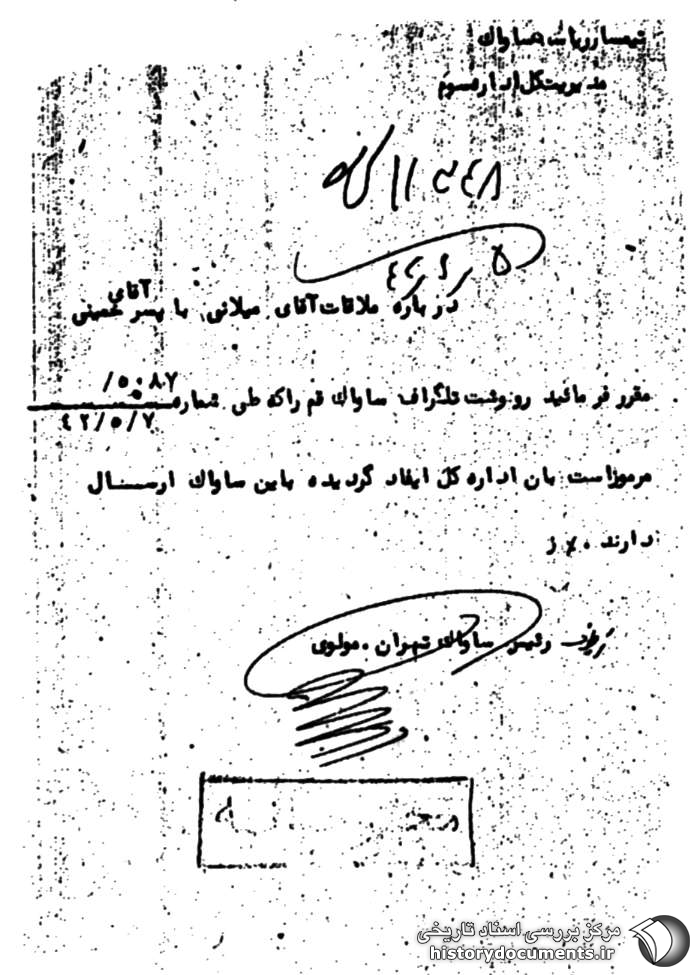 تیمسار ریاست ساواک
مدیریت کل اداره سوم
۱۱۳۴۸
۵ / ۶ / ۴۲
درباره ملاقات آقای میلانی با پسر آقای خمینی
مقرر فرمائید رونوشت تلگراف ساواک قم را که طی شماره ۵۰۸۷/
۴۲/۵/۷
مرموز است بان اداره کل ایفاد گردیده باین ساواک ارسال
دارند . ژ
رئیس ساواک تهران . مولوی
مرکز بررسی اسناد تاریخی
historydocuments.ir